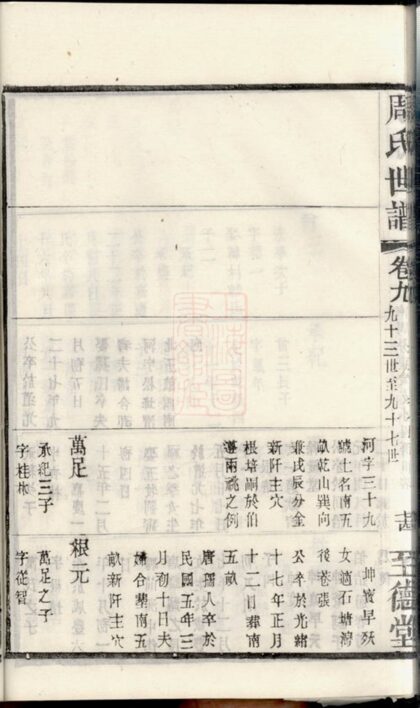 周氏世譜
卷九
九十三世至九十七世
至德堂
河字三十九
號土名南五
畝乾山巽向
兼戌辰分金
新阡主穴
根培嗣於伯
遵兩祧之例
萬足
承紀三子
字桂
坤寶早殀
女適石塘灣
後巷張
公卒於光緒
十七年正月
十二日葬南
五畝
唐孺人卒於
民國五年三
月初十日夫
婦合葬南五
畝新阡主穴
根元
萬足之子
字從智